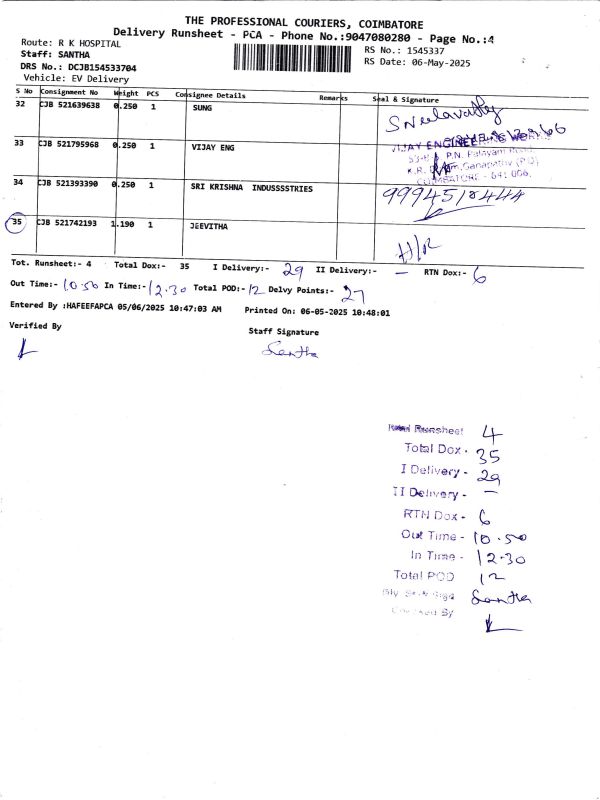 THE PROFESSIONAL COURIERS, COIMBATORE
Delivery Runsheet - PCA - Phone No.:9047080280 - Page No.:4
Route: R K HOSPITAL
RS No.: 1545337
Staff: SANTHA
RS Date: 06-May-2025
DRS No.: DCJB154533704
Vehicle: EV Delivery
S No Consignment No Weight PCS Consignee Details Remarks Seal & Signature
32 CJB 521639638 0.250 1 SUNG
33 CJB 521795968 0.250 1 VIJAY ENG
VIJAY ENGINEERING WORKS
P.N. Palayam
K.R. Ganapathy (P.O)
COIMBATORE - 641 006.
34 CJB 521393390 0.250 1 SRI KRISHNA INDUSSSSTRIES
35 CJB 521742193 1.190 1 JEEVITHA
Tot. Runsheet:- 4 Total Dox:- 35 I Delivery:- 29 II Delivery:- — RTN Dox:- 6
Out Time:- 10.50 In Time:- 12.30 Total POD:- 12 Delvy Points:- 27
Entered By :HAFEEFAPCA 05/06/2025 10:47:03 AM Printed On: 06-05-2025 10:48:01
Verified By
Staff Signature
Santha
Runsheet 4
Total Dox - 35
I Delivery - 29
II Delivery - —
RTN Dox - 6
Out Time - 10.50
In Time - 12.30
Total POD 12
Santha
Checked By